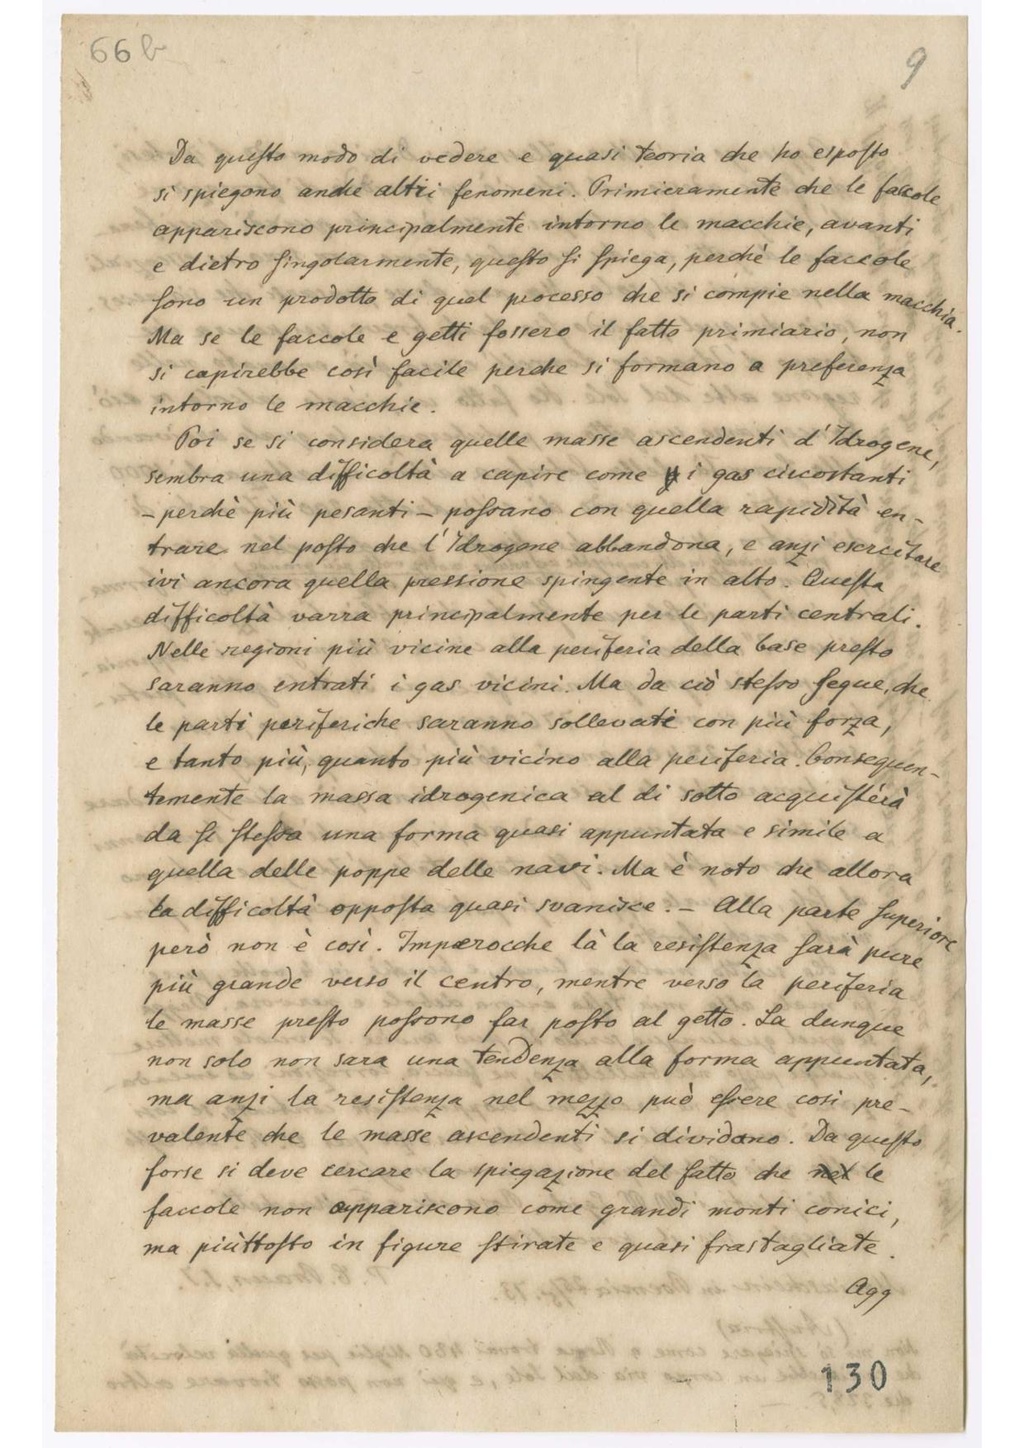 66 b
9
Da questo modo di vedere e quasi teoria che ho esposto
si spiegono anche altri fenomeni. Primieramente che le faccole
appariscono principalmente intorno le macchie, avanti
e dietro singolarmente, questo si spiega, perchè le faccole
sono un prodotto di quel processo che si compie nella macchia.
Ma se le faccole e getti fossero il fatto primiario, non
si capirebbe così facile perche si formano a preferenza
intorno le macchie.
Poi se si considera quelle masse ascendenti d'Idrogene,
sembra una difficoltà a capire come i gas circostanti
– perchè più pesanti – possano con quella rapidità en-
trare nel posto che l'Idrogene abbandona, e anzi esercitare
ivi ancora quella pressione spingente in alto. Questa
difficoltà varra principalmente per le parti centrali.
Nelle regioni più vicine alla periferia della base presto
saranno entrati i gas vicini. Ma da ciò stesso segue, che
le parti periferiche saranno sollevate con più forza,
e tanto più, quanto più vicino alla periferia. Conseguen-
temente la massa idrogenica al di sotto acquisterà
da se stessa una forma quasi appuntata e simile a
quella delle poppe delle navi. Ma è noto che allora
la difficoltà opposta quasi svanisce. – Alla parte superiore
però non è così. Imperocche là la resistenza sarà pure
più grande verso il centro, mentre verso la periferia
le masse presto possono far posto al getto. La dunque
non solo non sara una tendenza alla forma appuntata,
ma anzi la resistenza nel mezzo può essere cosi pre-
valente che le masse ascendenti si dividono. Da questo
forse si deve cercare la spiegazione del fatto che le
faccole non appariscono come grandi monti conici,
ma piùttosto in figure stirate e quasi frastagliate.
Agg
130